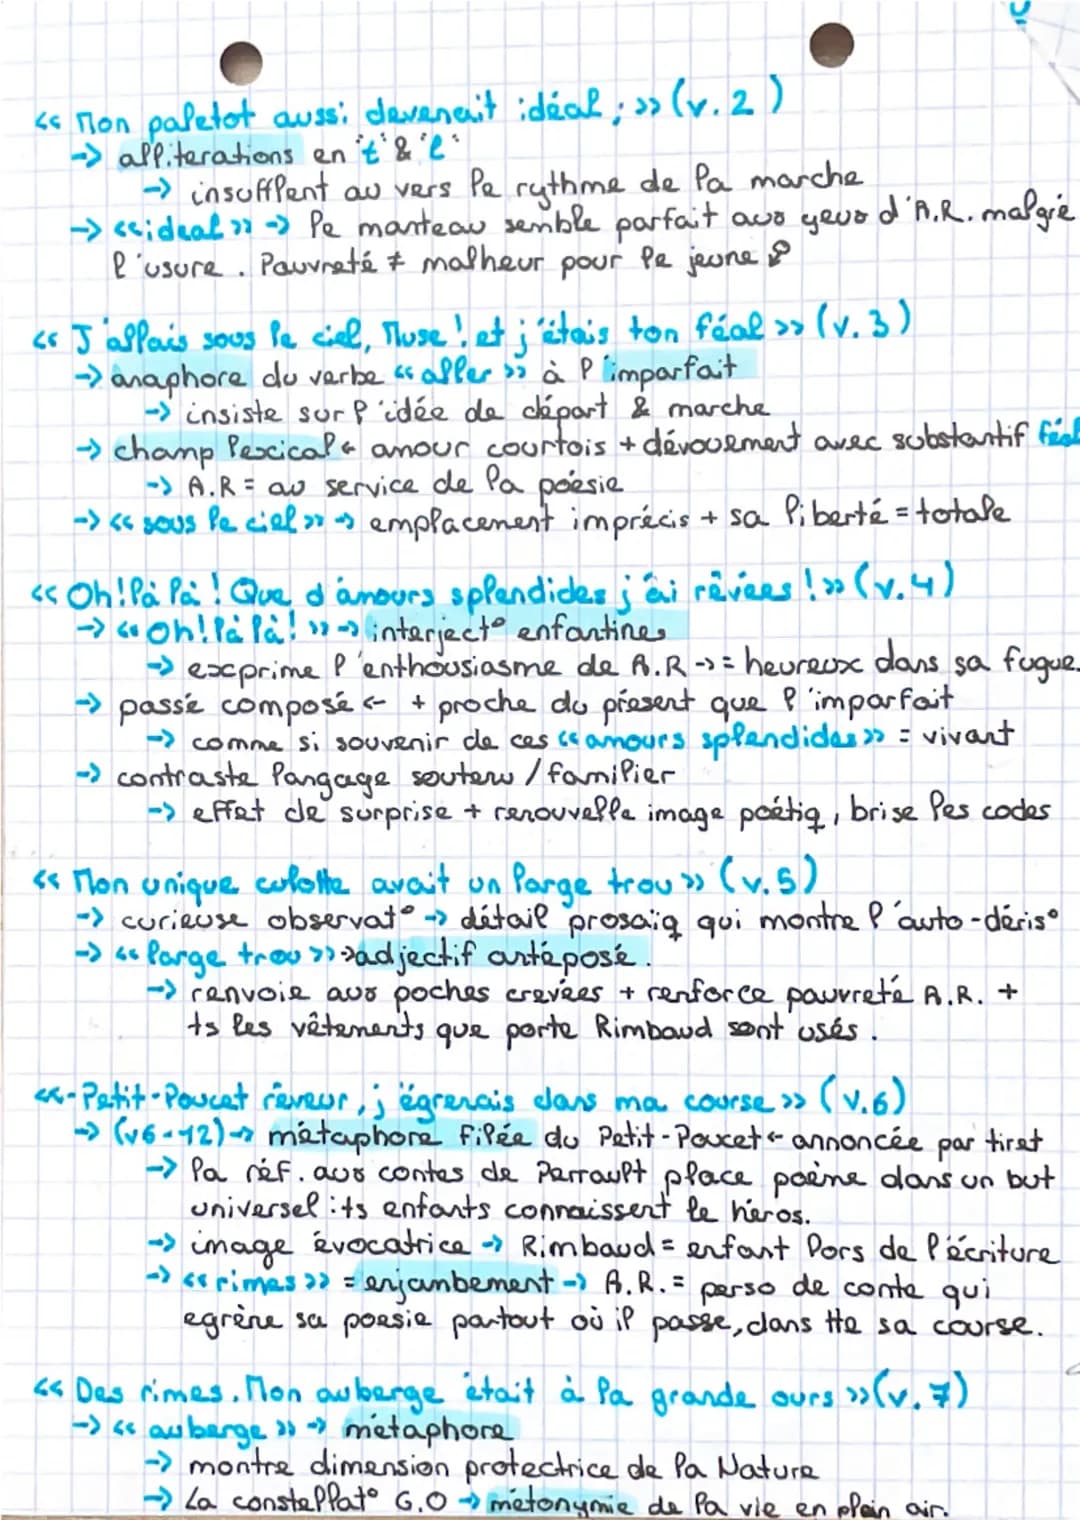 << Mon paletot aussi devenait idéal ; >> (v. 2)
-> alliterations en 't' & 'l'
-> insufflent au vers le rythme de la marche
-> << ideal >> -> le manteau semble parfait aux yeux d'A.R. malgré
l'usure. Pauvreté ≠ malheur pour le jeune
<< J'allais sous le ciel, Muse ! et j'étais ton féal >> (v. 3)
-> anaphore du verbe << aller >> à l'imparfait
-> insiste sur l'idée de départ & marche
-> champ lexical <- amour courtois + dévouement avec substantif féal
-> A.R = au service de la poésie
-> << sous le ciel >> -> emplacement imprécis + sa liberté = totale
<< Oh! là là ! Que d'amours splendides j'ai rêvées ! >> (v. 4)
-> << Oh! là là! >> -> interject° enfantines
-> exprime l'enthousiasme de A.R -> = heureux dans sa fugue.
-> passé composé <- + proche du présent que l'imparfait
-> comme si souvenir de ces << amours splendides >> = vivant
-> contraste langage soutenu / familier
-> effet de surprise + renouvelle image poétiq, brise les codes
<< Mon unique culotte avait un large trou >> (v. 5)
-> curieuse observat° -> détail prosaïq qui montre l'auto-déris°
-> << large trou >> -> adjectif antéposé.
-> renvoie aux poches crevées + renforce pauvreté A.R. +
ts les vêtements que porte Rimbaud sont usés.
<< - Petit-Poucet rêveur, j'égrenais dans ma course >> (v.6)
-> (v6-12) -> métaphore filée du Petit-Poucet <- annoncée par tiret
-> la réf. aux contes de Perrault place poème dans un but
universel : ts enfants connaissent le héros.
-> image évocatrice -> Rimbaud = enfant lors de l'écriture
-> << rimes >> = enjambement -> A.R. = perso de conte qui
egrène sa poesie partout où il passe, dans tte sa course.
<< Des rimes. Mon auberge était à la grande ours >> (v. 7)
-> << auberge >> -> métaphore
-> montre dimension protectrice de la Nature
-> La constellat° G.O -> métonymie de la vie en plein air.